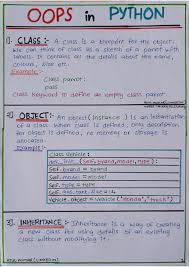 OOPS in PYTHON
1). CLASS :- A class is a blueprint for the object.
We can think of class as a sketch of a parrot with
labels. It contains all the details about the name,
colours, size etc.
Example :-
Class parrot:
pass
Class keyword to define an empty class parrot
2). OBJECT:- An object (instance) is an instantiation
of a class. When class is defined, only description
for object is defined, no memory or storage is
allocated.
Example:-
Class Vehicle:
def __init__(self, brand, model, type):
self.brand = brand
self.model = model
self.type = type
self.gas_tank_size = 14
Vehicle_object = Vehicle("Honda", "truck")
3). INHERITANCE :- Inheritance is a way of creating
a new class for using details of an existing
class without modifying it.